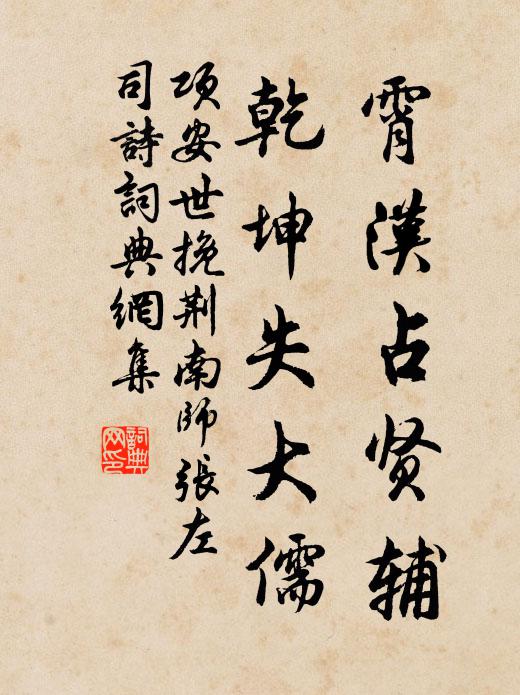 霄漢占贤辅
乾坤失大儒
項安世挽荆南師張左
司詩詞典網集
詞典网印